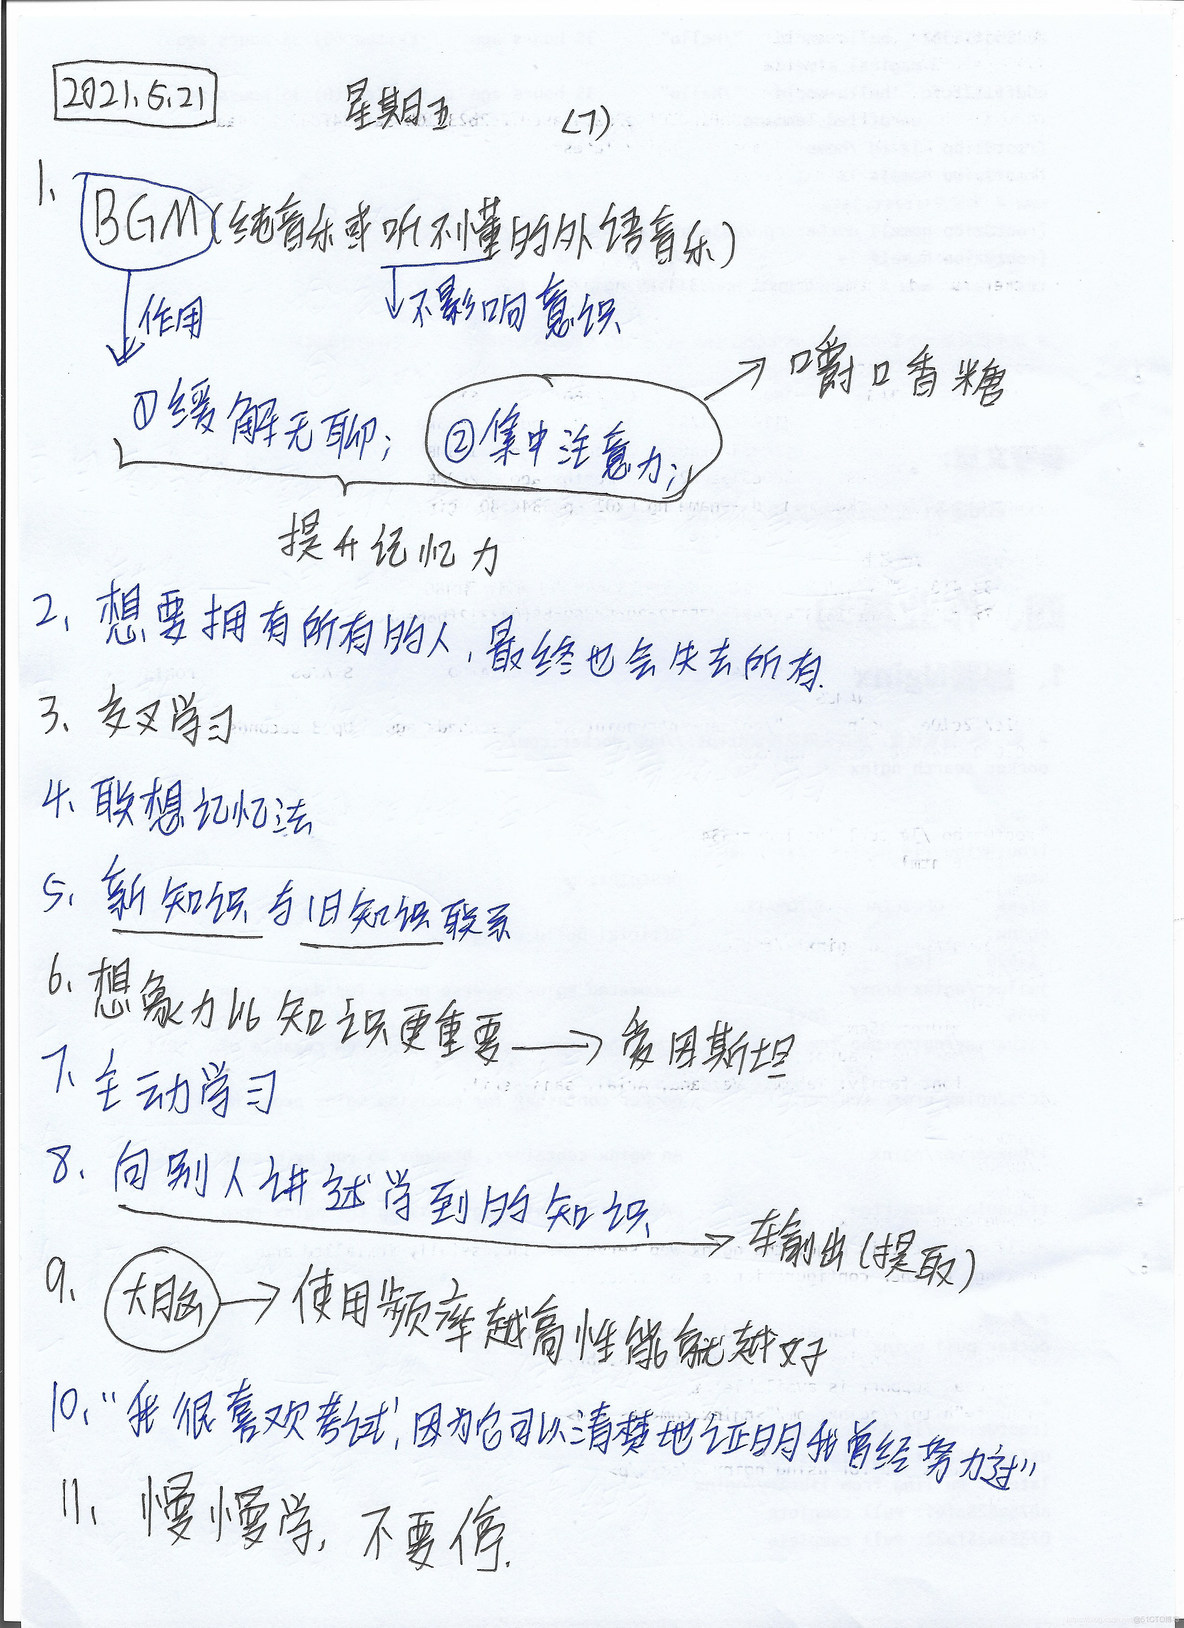 2021.5.21 星期五 (7)
1. BGM(纯音乐或听不懂的外语音乐)
作用 不影响意识
嚼口香糖
①缓解无聊; ②集中注意力;
提升记忆力
2、想要拥有所有的人,最终也会失去所有.
3、交叉学习
4、联想记忆法
5、新知识与旧知识联系
6、想象力比知识更重要 → 爱因斯坦
7、主动学习
8、向别人讲述学到的知识 → 输出(提取)
9、大脑 → 使用频率越高性能就越好
10、“我很喜欢考试,因为它可以清楚地证明我曾经努力过”
11、慢慢学,不要停.